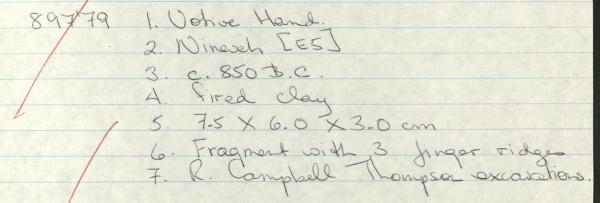 89779 1. Votive Hand.
2. Nineveh [E5]
3. c. 850 B.C.
4. fired clay
5. 7.5 X 6.0 X 3.0 cm
6. Fragment with 3 finger ridges
7. R. Campbell Thompson excavations.